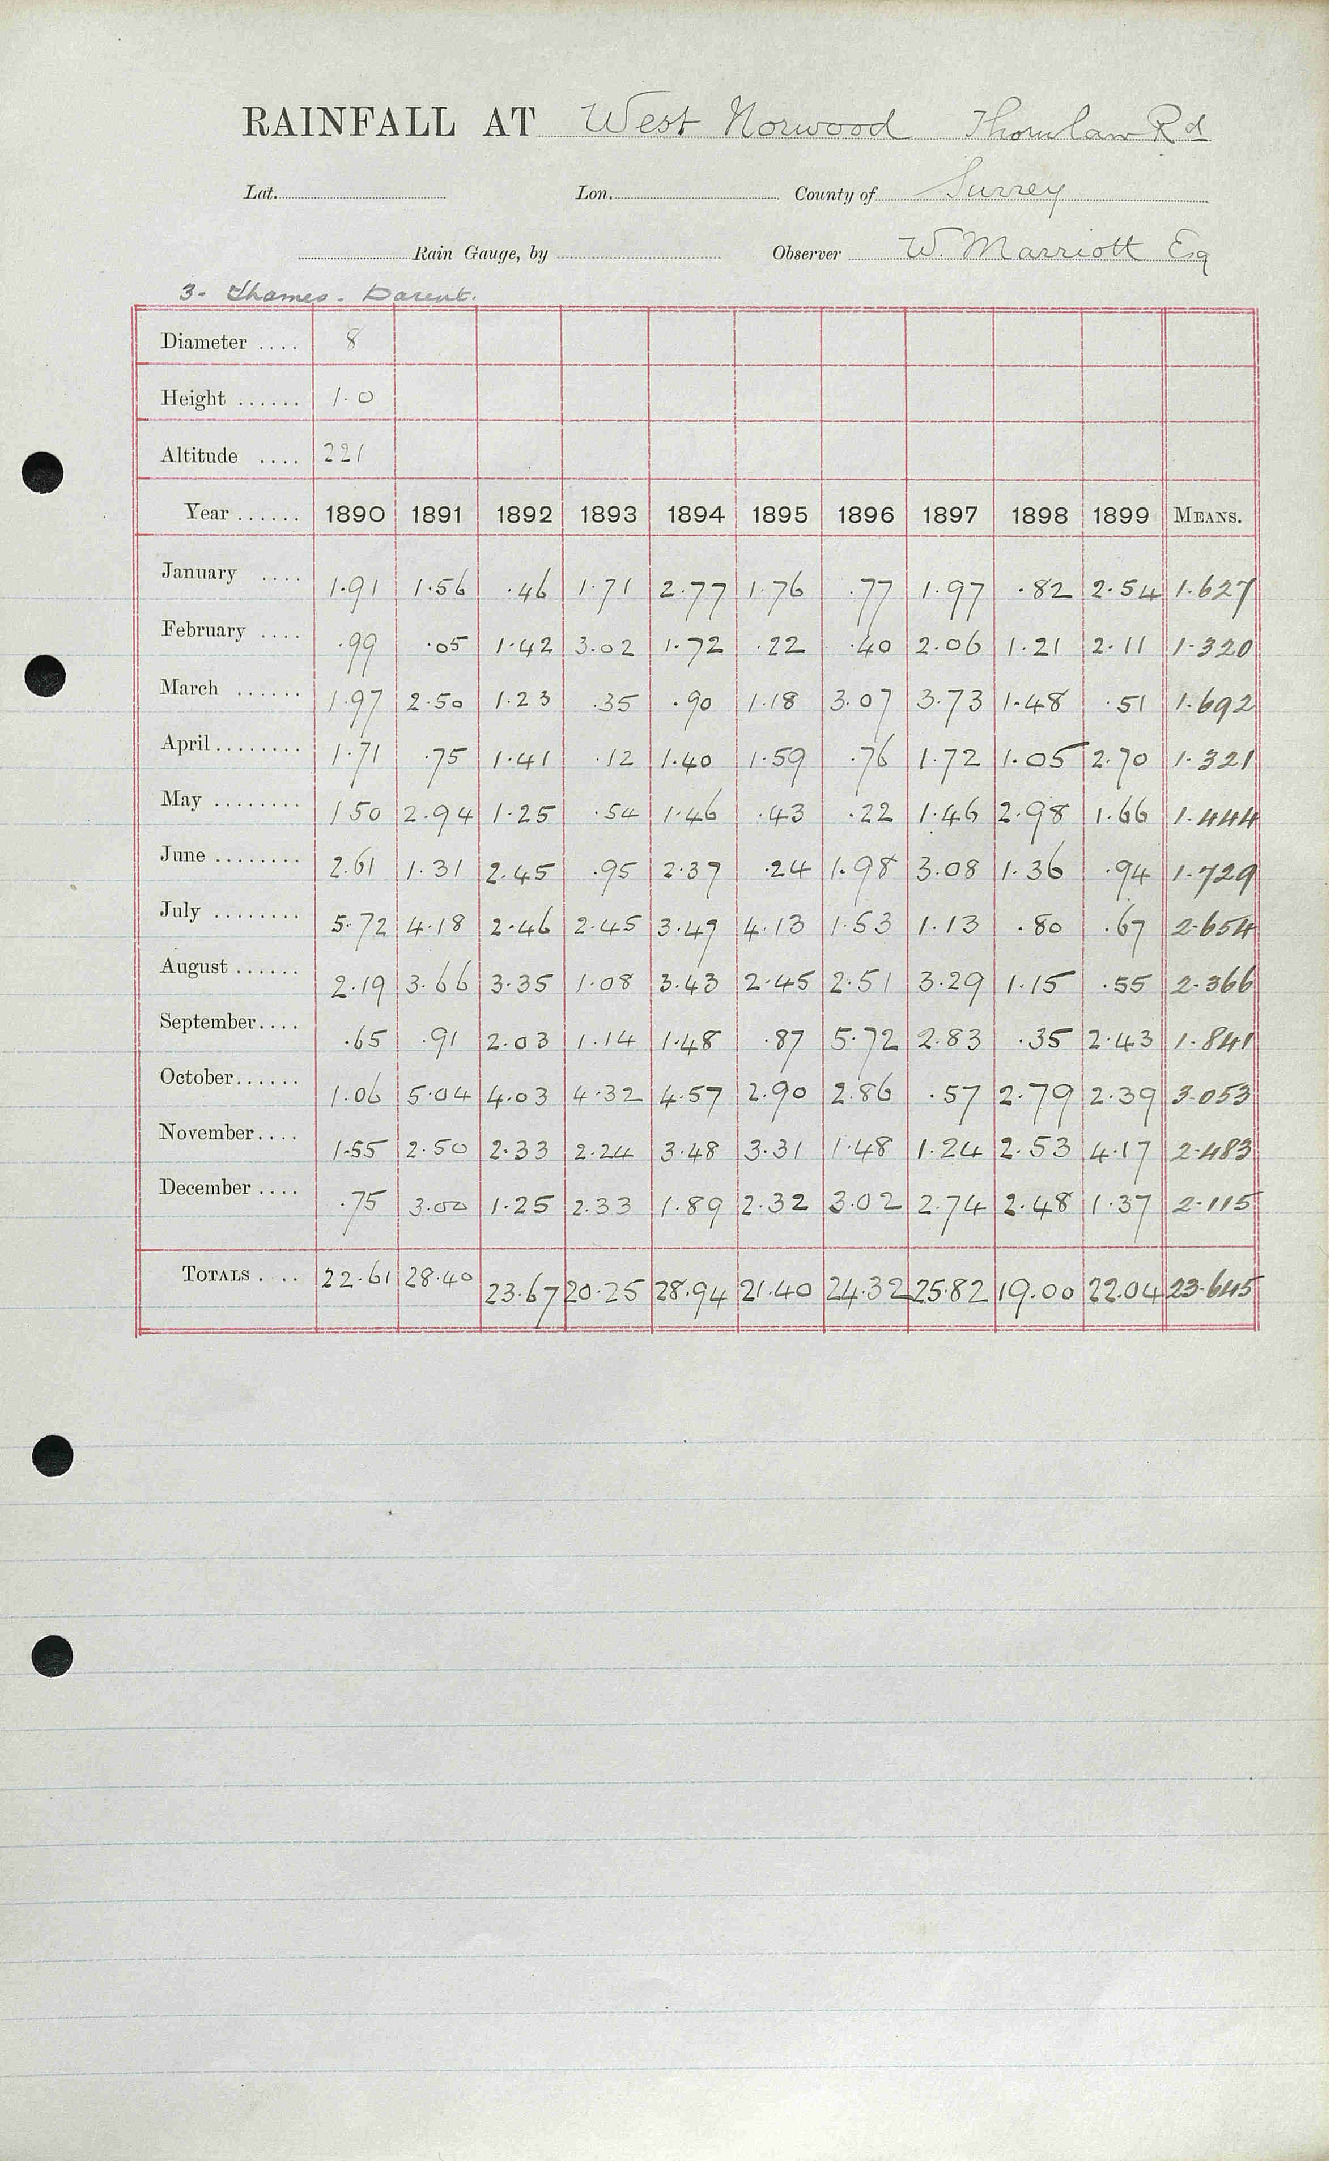 RAINFALL AT West Norwood Thornlaw Rd
Lat. Lon. County of Surrey
Rain Gauge, by Observer W. Marriott Esq
3- Thames. Darent.
Diameter .... 8
Height ...... 1.0
Altitude .... 221
Year ...... 1890 1891 1892 1893 1894 1895 1896 1897 1898 1899 MEANS.
January .... 1.91 1.56 .46 1.71 2.77 1.76 .77 1.97 .82 2.54 1.627
February .... .99 .05 1.42 3.02 1.72 .22 .40 2.06 1.21 2.11 1.320
March ...... 1.97 2.50 1.23 .35 .90 1.18 3.07 3.73 1.48 .51 1.692
April........ 1.71 .75 1.41 .12 1.40 1.59 .76 1.72 1.05 2.70 1.321
May ........ 1 50 2.94 1.25 .54 1.46 .43 .22 1.46 2.98 1.66 1.444
June ........ 2.61 1.31 2.45 .95 2.37 .24 1.98 3.08 1.36 .94 1.729
July ........ 5.72 4.18 2.46 2.45 3.47 4.13 1.53 1.13 .80 .67 2.654
August ...... 2.19 3.66 3.35 1.08 3.43 2.45 2.51 3.29 1.15 .55 2.366
September.... .65 .91 2.03 1.14 1.48 .87 5.72 2.83 .35 2.43 1.841
October...... 1.06 5.04 4.03 4.32 4.57 2.90 2.86 .57 2.79 2.39 3.053
November.... 1.55 2.50 2.33 2.24 3.48 3.31 1.48 1.24 2.53 4.17 2.483
December .... .75 3.00 1.25 2.33 1.89 2.32 3.02 2.74 2.48 1.37 2.115
TOTALS .... 22.61 28.40 23.67 20.25 28.94 21.40 24.32 25.82 19.00 22.04 23.645